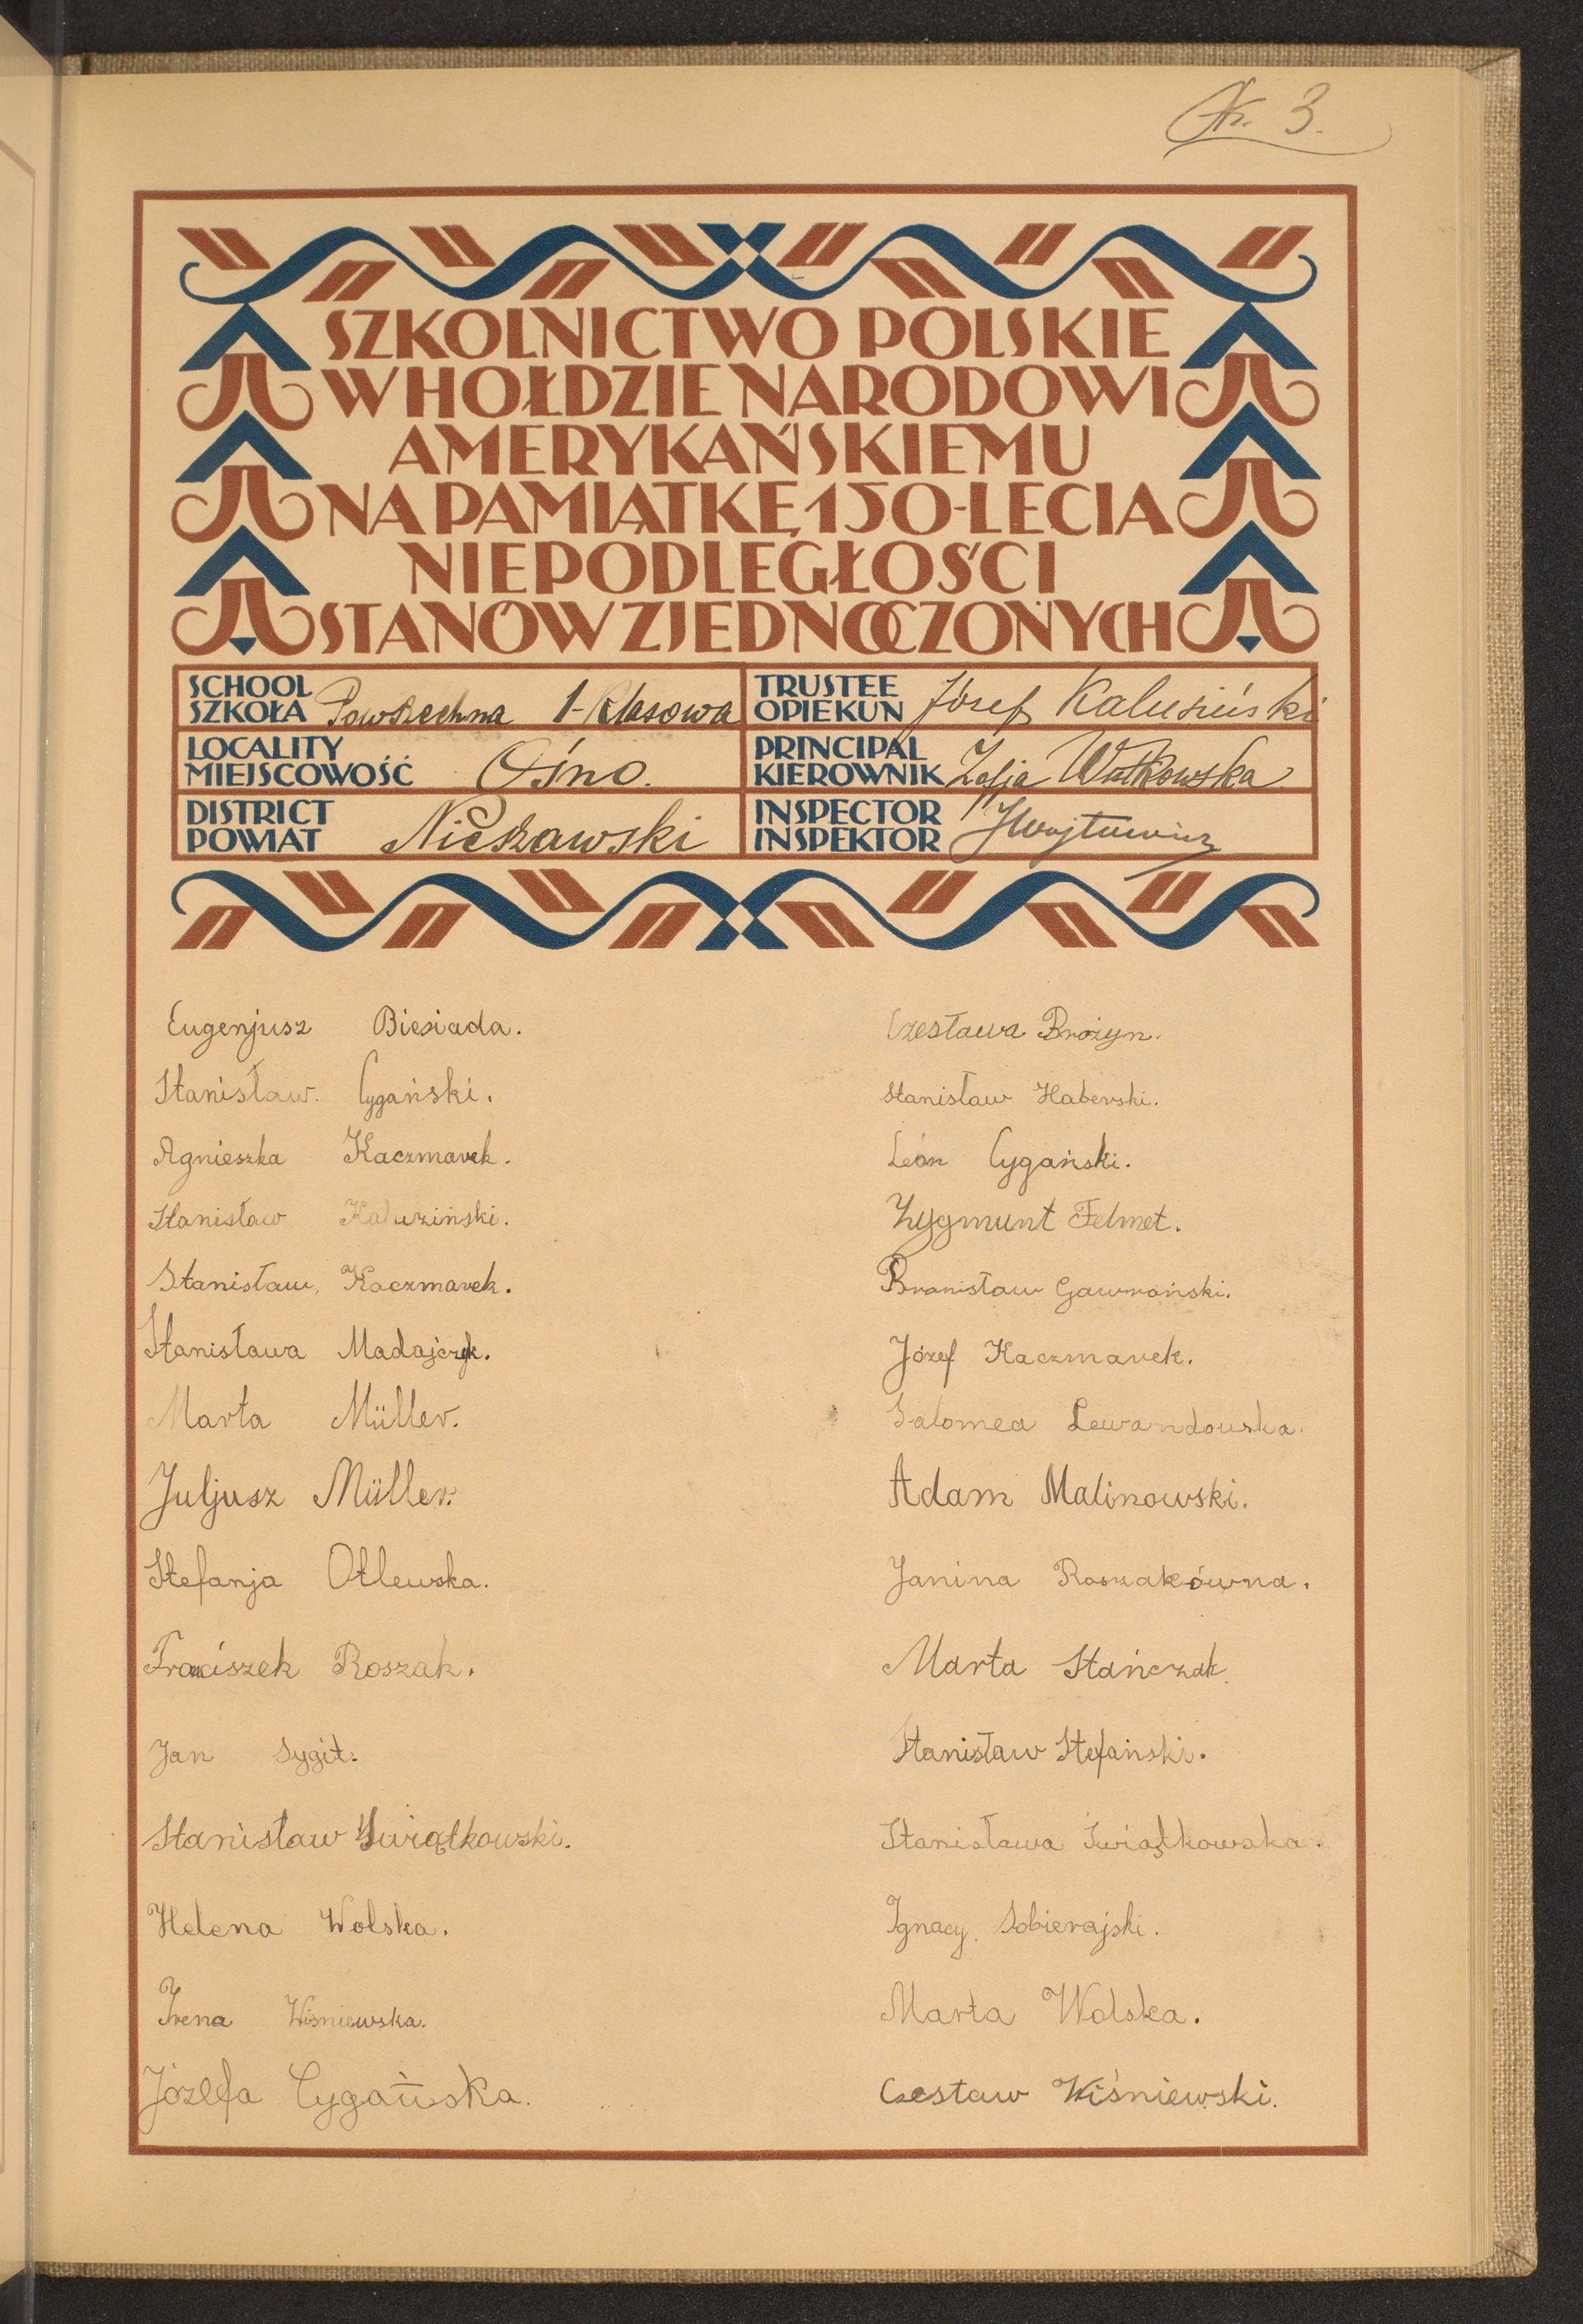 Nr. 3.
SZKOLNICTWO POLSKIE
W HOŁDZIE NARODOWI
AMERYKAŃSKIEMU
NA PAMIĄTKĘ 150-LECIA
NIEPODLEGŁOŚCI
STANÓW ZJEDNOCZONYCH
SCHOOL
SZKOŁA Powszechna 1-klasowa
TRUSTEE
OPIEKUN Józef Kalusiński
LOCALITY
MIEJSCOWOŚĆ Ośno.
PRINCIPAL
KIEROWNIK Zofja Wutkowska
DISTRICT
POWIAT Nieszawski
INSPECTOR
INSPEKTOR
Eugenjusz Biesiada.
Stanisław. Cygański.
Agnieszka Kaczmarek.
Stanisław Kaluziński.
Stanisław, Kaczmarek.
Stanisława Madajczyk.
Marta Müller.
Juljusz Müller.
Stefanja Otlewska.
Franciszek Roszak.
Jan Sygit.
Stanisław Swiątkowski.
Helena Wolska.
Irena Wiśniewska.
Józefa Cygańska.
Czesława Brożyn.
Stanisław Haberski.
Leon Cygański.
Zygmunt Felmet.
Bronisław Gawroński.
Józef Kaczmarek.
Salomea Lewandowska.
Adam Malinowski.
Janina Roszakówna.
Marta Stańczak.
Stanisław Stefański.
Stanisława Świątkowska.
Ignacy. Sobierajski.
Marta Wolska.
Czestaw Wiśniewski.